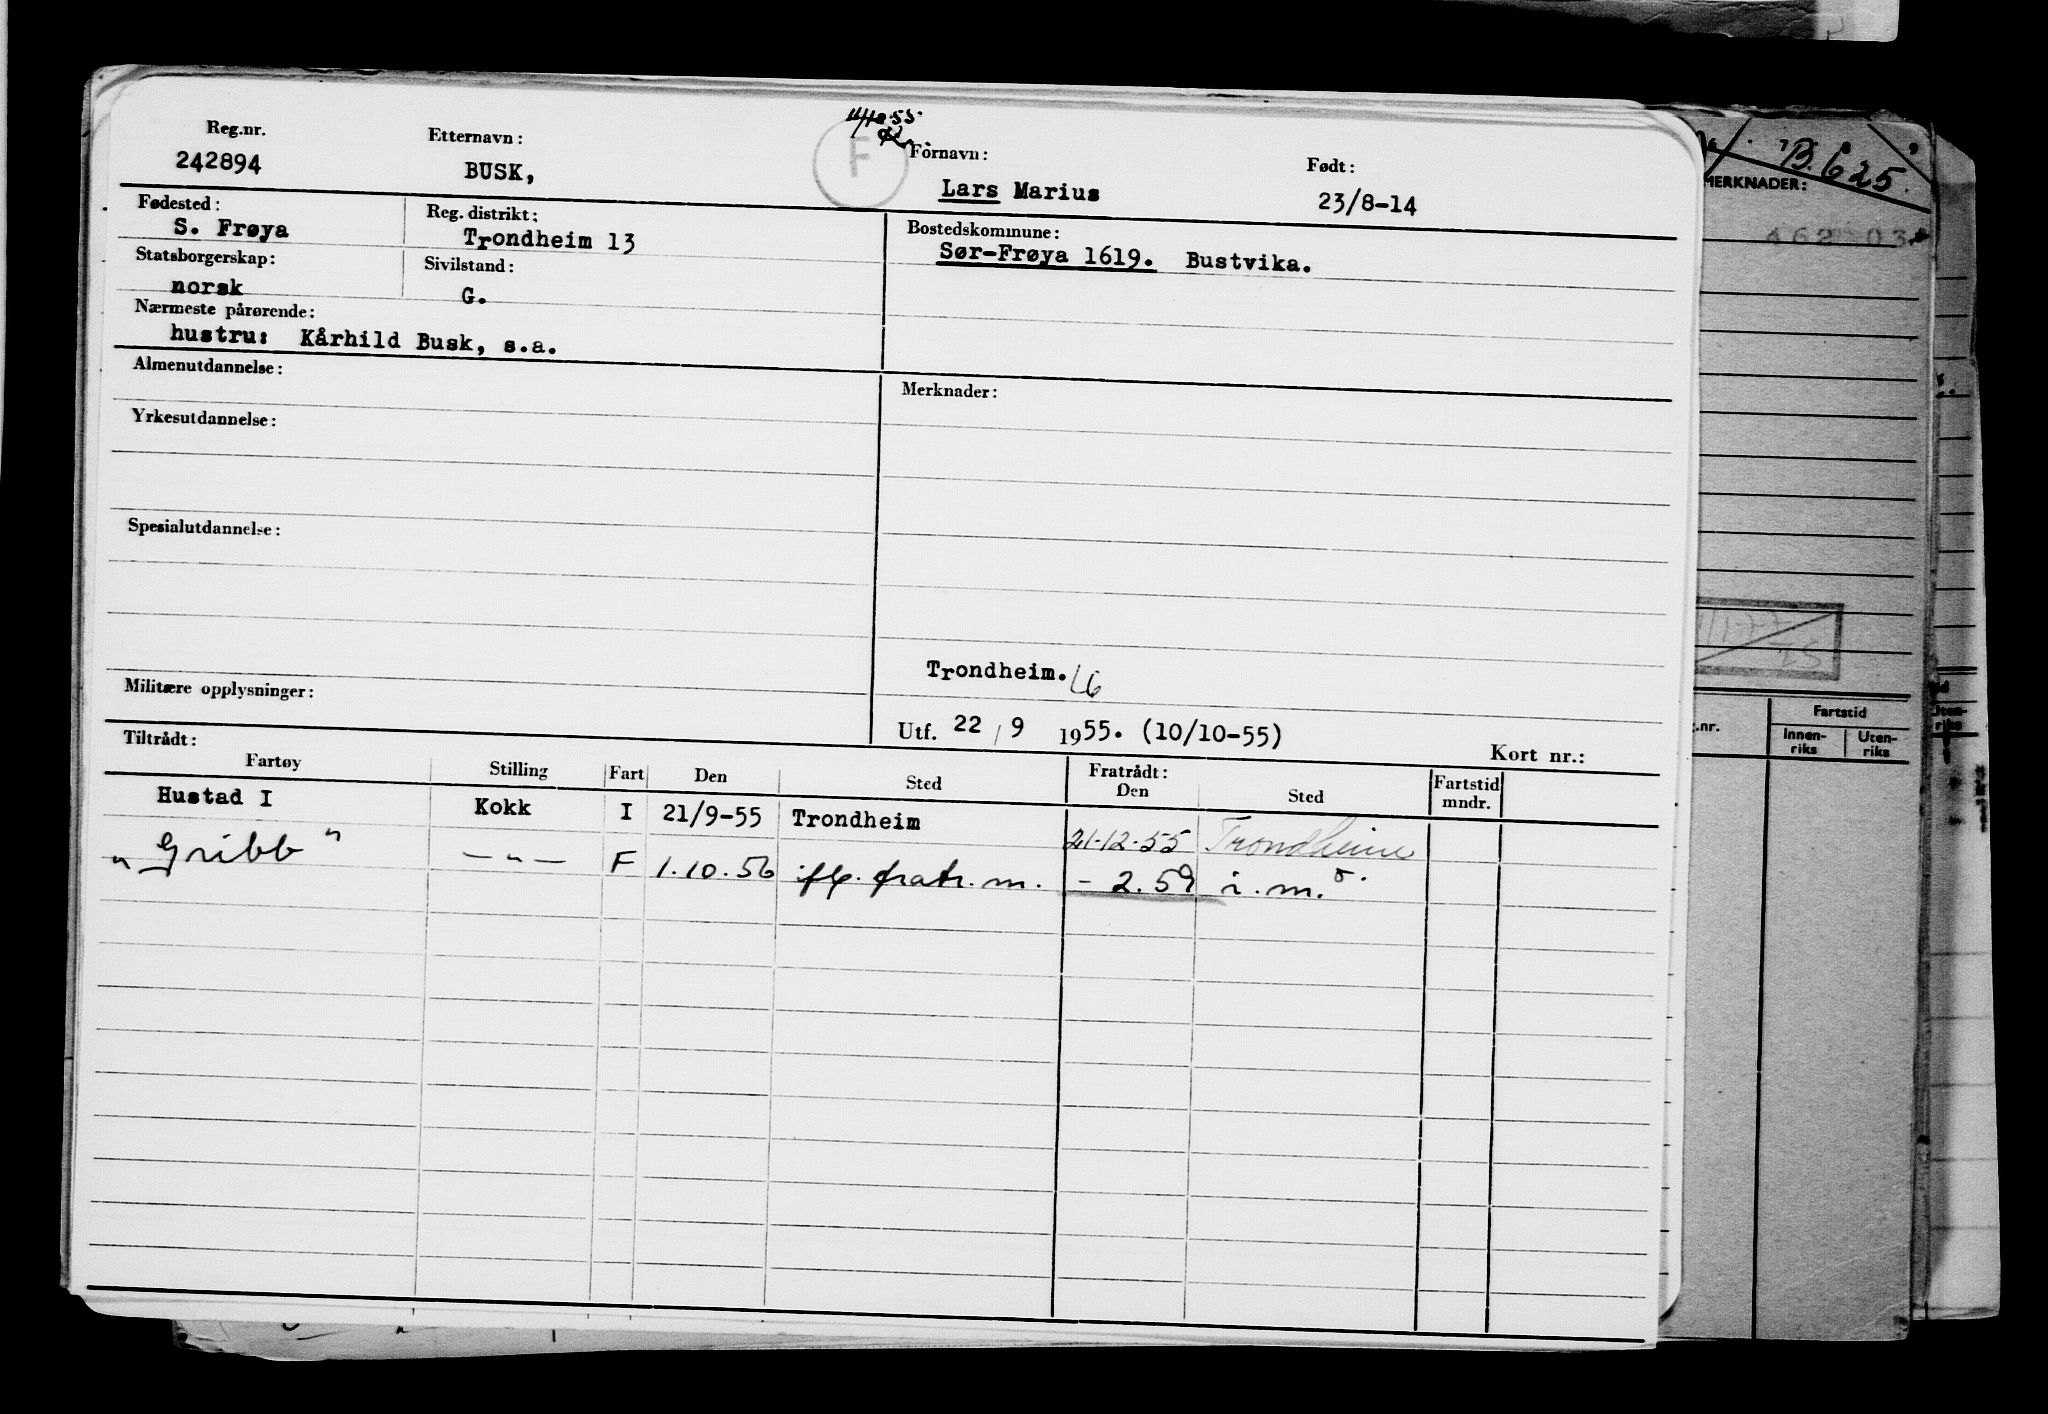 Reg.nr. Etternavn: Fornavn: Født:
242894 BUSK, F Lars Marius 23/8-14
Fødested: Reg. distrikt: Bostedskommune:
S. Frøya Trondheim 13 Sør-Frøya 1619. Bustvika.
Statsborgerskap: Sivilstand:
norsk G.
Nærmeste pårørende:
hustru: Kårhild Busk, s.a.
Almenutdannelse: Merknader:
Yrkesutdannelse:
Spesialutdannelse:
Trondheim.
Militære opplysninger:
Utf. 22/9 1955. (10/10-55)
Kort nr.:
Tiltrådt: Fratrådt:
Fartøy Stilling Fart Den Sted Den Sted Fartstid mndr.
Hustad I Kokk I 21/9-55 Trondheim 21-12-55 Trondheim
"Gribb" —"— F 1.10.56 iflg. fratr.m. - 2.59 i.m.
B. 625.
MERKNADER:
.nr. Fartstid
Innen-riks Uten-riks